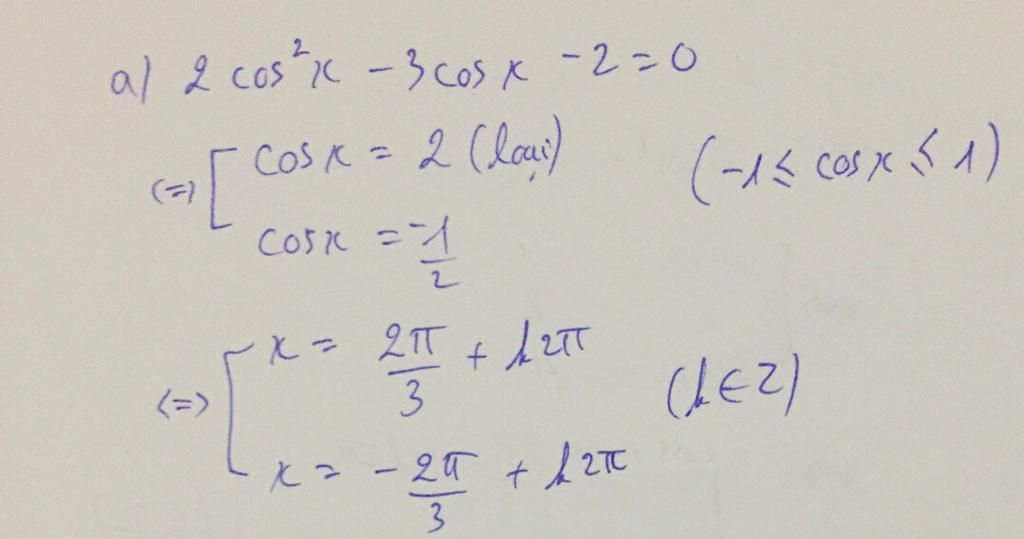 a) 2 cos²x - 3 cos x - 2 = 0
(=) [ cos x = 2 (loại) (-1 ≤ cos x ≤ 1)
cos x = -1/2
<=> [ x = 2π/3 + k2π
(k ∈ Z)
x = -2π/3 + k2π